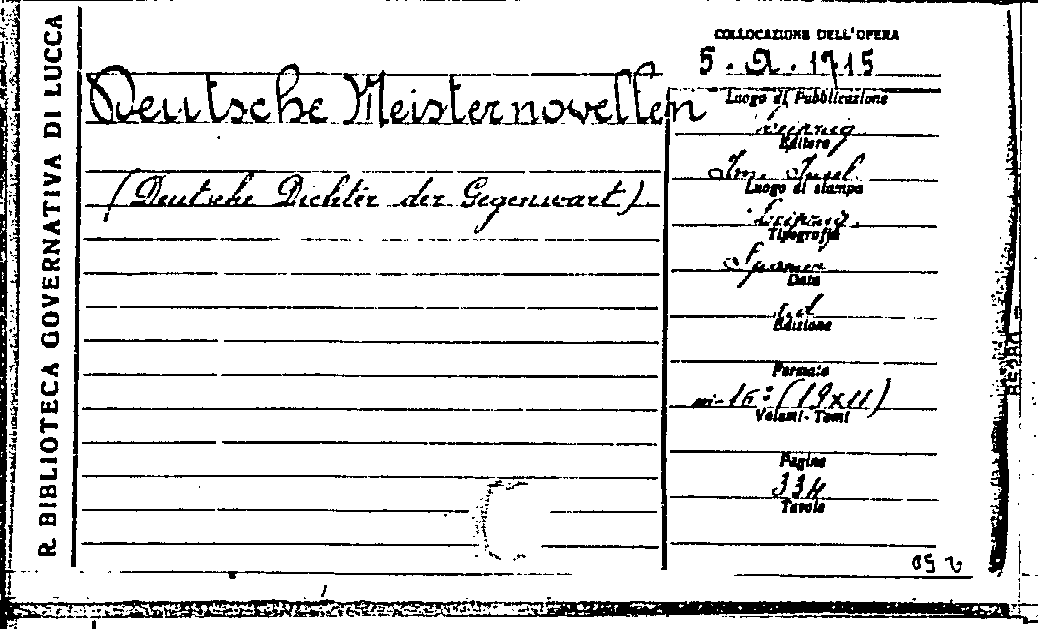 R. BIBLIOTECA GOVERNATIVA DI LUCCA
COLLOCAZIONE DELL'OPERA
5. Q. 1715
Deutsche Meisternovellen
(Deutsche Dichter der Gegenwart)
Luogo di Pubblicazione
Leipzig
Editore
Im. Insel.
Luogo di stampa
Leipzig.
Tipografia
Spamer
Data
s.d.
Edizione
Formato
in-16: (19x11)
Volumi - Tomi
Pagine
334
Tavole